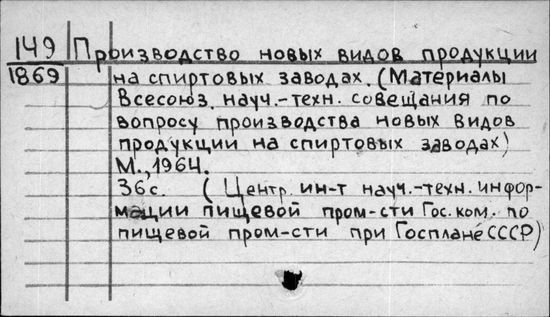 149 Производство новых видов продукции
1869 на спиртовых заводах. (Материалы
Всесоюз. науч.-техн. совещания по
вопросу производства новых видов
продукции на спиртовых заводах)
М., 1964.
36с. (Центр. ин-т науч.-техн. инфор-
мации пищевой пром-сти Гос. ком. по
пищевой пром-сти при Госплане СССР)